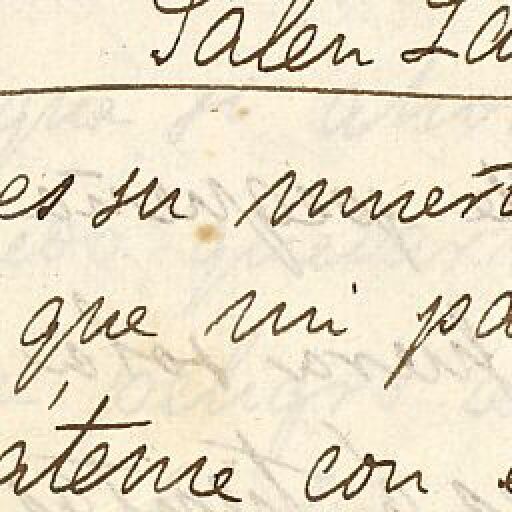 Salen La
es su muert
que mi pa
áteme con e